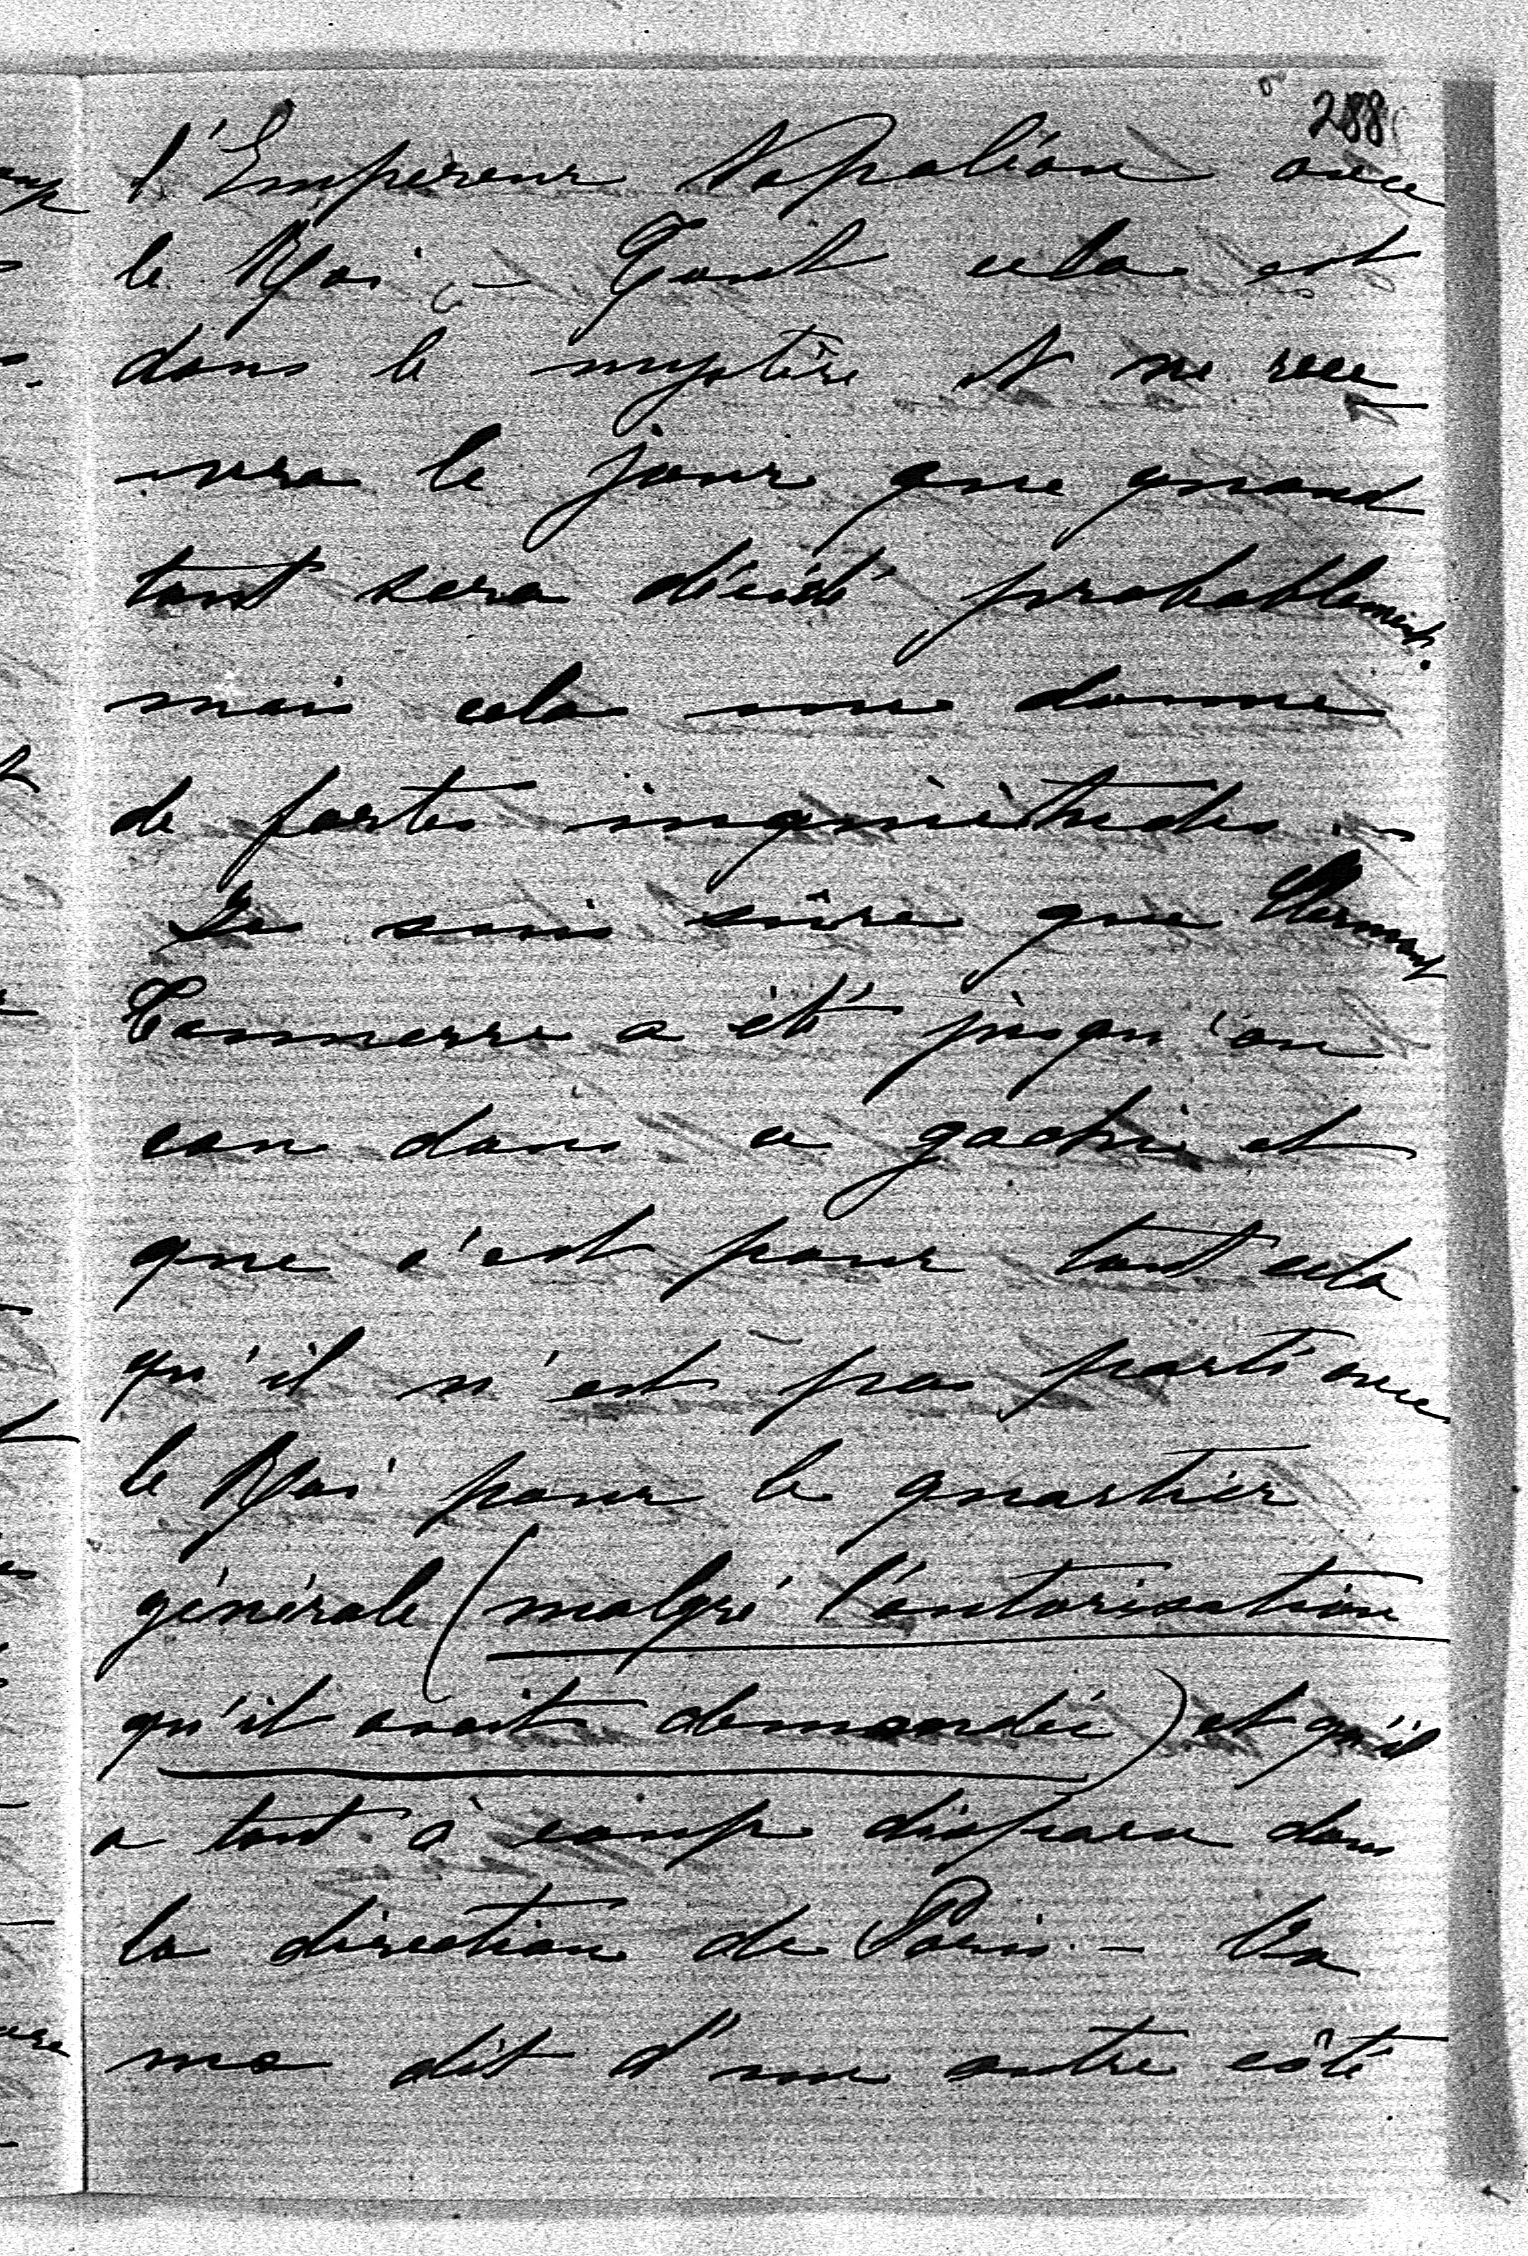 288
l'Empereur Napoléon avec
le Roi; – Tout cela est
dans le mystère et ne rece
vra le jour que quand
tout sera décidé probablement.
mais cela me donne
de fortes inquiètudes. –
Je suis sûre que Clermont
Tonnerre a été jusqu'au
cou dans ce gachi et
que c'est pour tout cela
qu'il n'est pas parti avec
le Roi pour le quartier
générale (malgré l'autorisation
qu'il avait demandée) et qu'il
a tout à coup disparu dans
la direction de Paris. – On
ma dit d'une autre côté